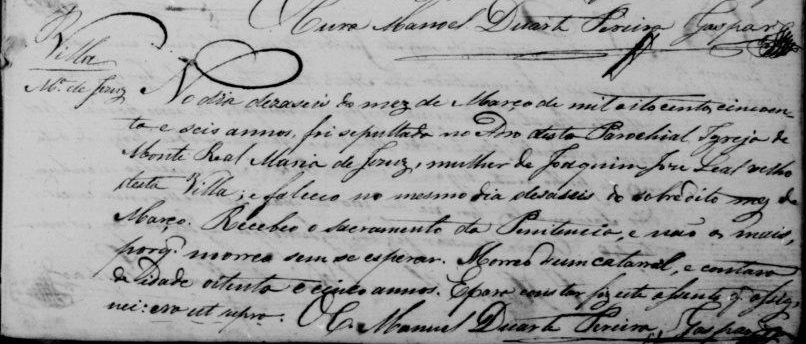 Cura Manoel Duarte Pereira Gaspar
Villa
Mª. de Jezuz
No dia dezaseis do mez de Março de mil oito cento, cincoen-
ta e seis annos, foi sepultada no Adro desta Parochial Igreja de
Monte Real Maria de Jezuz, mulher de Joaquim Joze Leal velho
desta Villa; e faleceo no mesmo dia dezaseis do sobredito mez de
Março. Recebeo o sacramento da Penitencia, e não os mais,
porq. morreo sem se esperar. Morreo d'um catarral, e contava
de idade oitenta e cinco annos. E para constar fiz este assento q. assig-
nei: era ut supra. O C. Manuel Duarte Pereira Gaspar